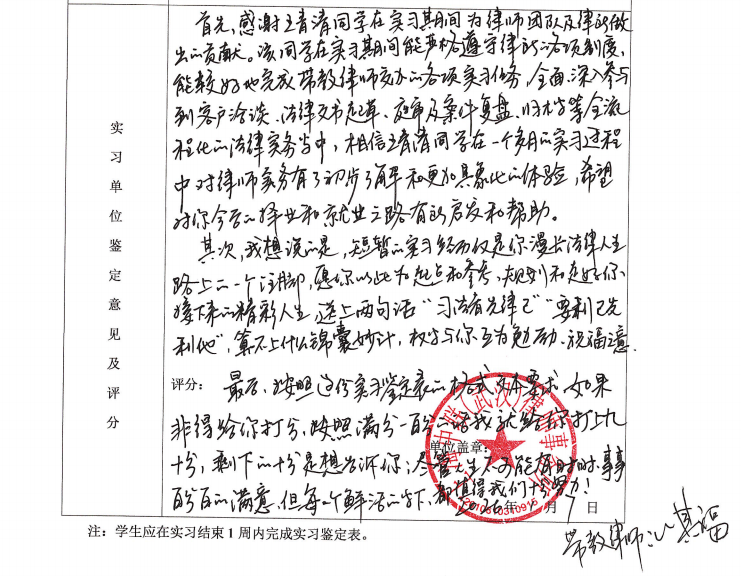 实习单位鉴定意见及评分
首先,感谢王青清同学在实习期间为律师团队及律所做
出的贡献。该同学在实习期间能严格遵守律所的各项制度,
能较好地完成带教律师交办的各项实习任务,全面、深入参与
到客户洽谈、法律文书起草、庭审及案件复盘、归档等全流
程化的法律实务当中,相信王青清同学在一个多月的实习过程
中对律师实务有了初步了解和更加具象化的体验,希望
对你今后的择业和就业之路有所启发和帮助。
其次,我想说的是,短暂的实习经历仅是你漫长法律人生
路上的一个注脚,愿你以此为起点和参考,规划和走好你
接下来的精彩人生,送上两句话“习法者先律己”“要利己先
利他”,算不上什么锦囊妙计,权当与你互为勉励、祝福之意。
评分: 最后,按照这份实习鉴定表的格式文本要求,如果
非得给你打分,按照满分一百分的话我就给你打上九
十分,剩下的十分是想告诉你,尽管人生不可能有时时、事事
百分百的满意,但每一个鲜活的当下,都值得我们十分努力!
单位盖章:
(武汉)律师事务所
年 月 日
注:学生应在实习结束1周内完成实习鉴定表。
带教律师: